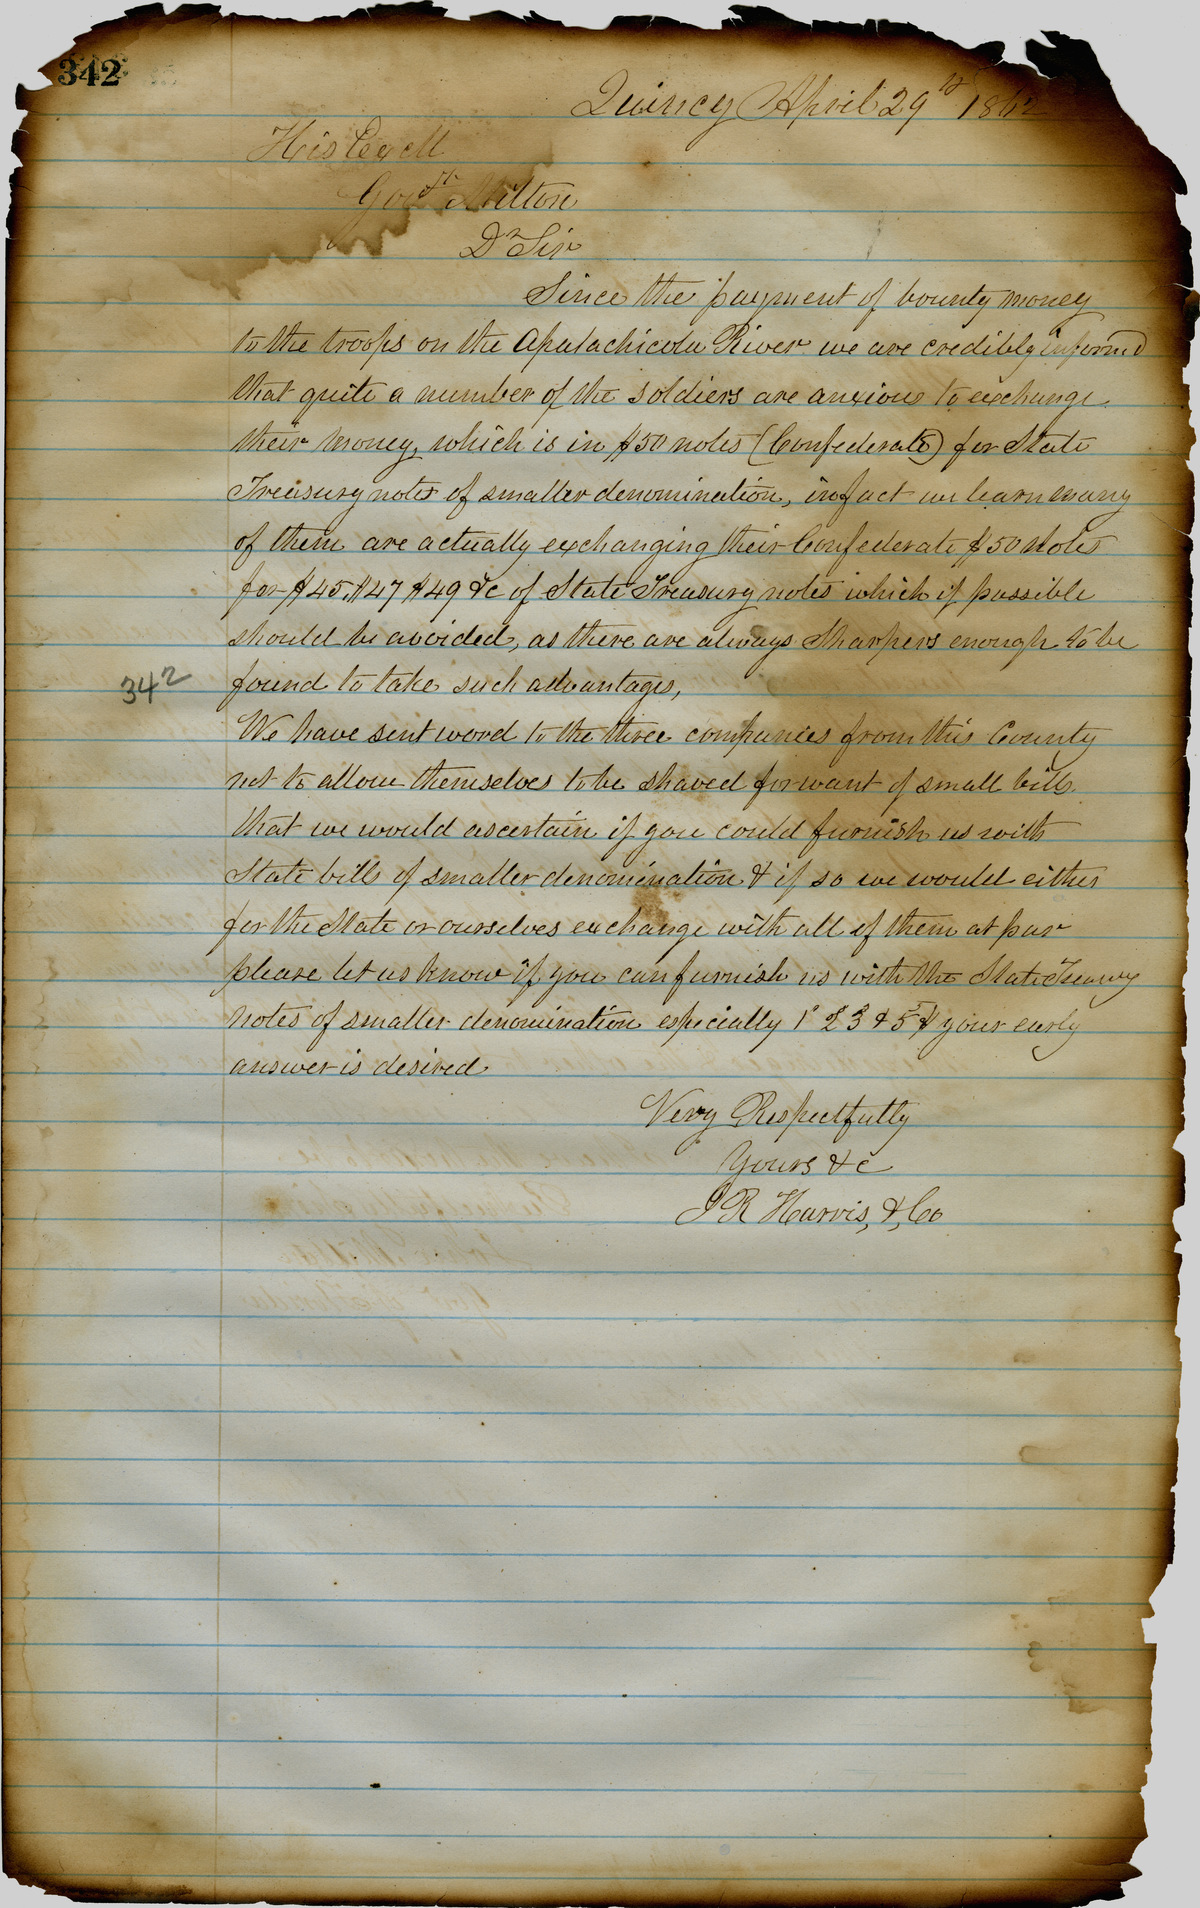 342
Quincy April 29th 1862
His Excell
Govr Milton
Dr Sir
Since the payment of bounty money
to the troops on the Apalachicola River we are credibly informed
that quite a number of the soldiers are anxious to exchange
their money, which is in $50 notes (Confederate) for State
Treasury notes of smaller denomination, infact we learn many
of them are actually exchanging their Confederate $50 notes
for $45, $47 $49 &c of State Treasury notes which if possible
should be avoided, as there are always Sharpers enough to be
342
found to take such advantages,
We have sent word to the three companies from this County
not to allow themselves to be shaved for want of small bills
that we would ascertain if you could furnish us with
State bills of smaller denomination & if so we would either
for the State or ourselves exchange with all of them at par
please let us know if you can furnish us with the State Treasury
notes of smaller denomination especially 1s 2s 3s & 5s $ your early
answer is desired
Very Respectfully
Yours &c
J R Harris, & Co